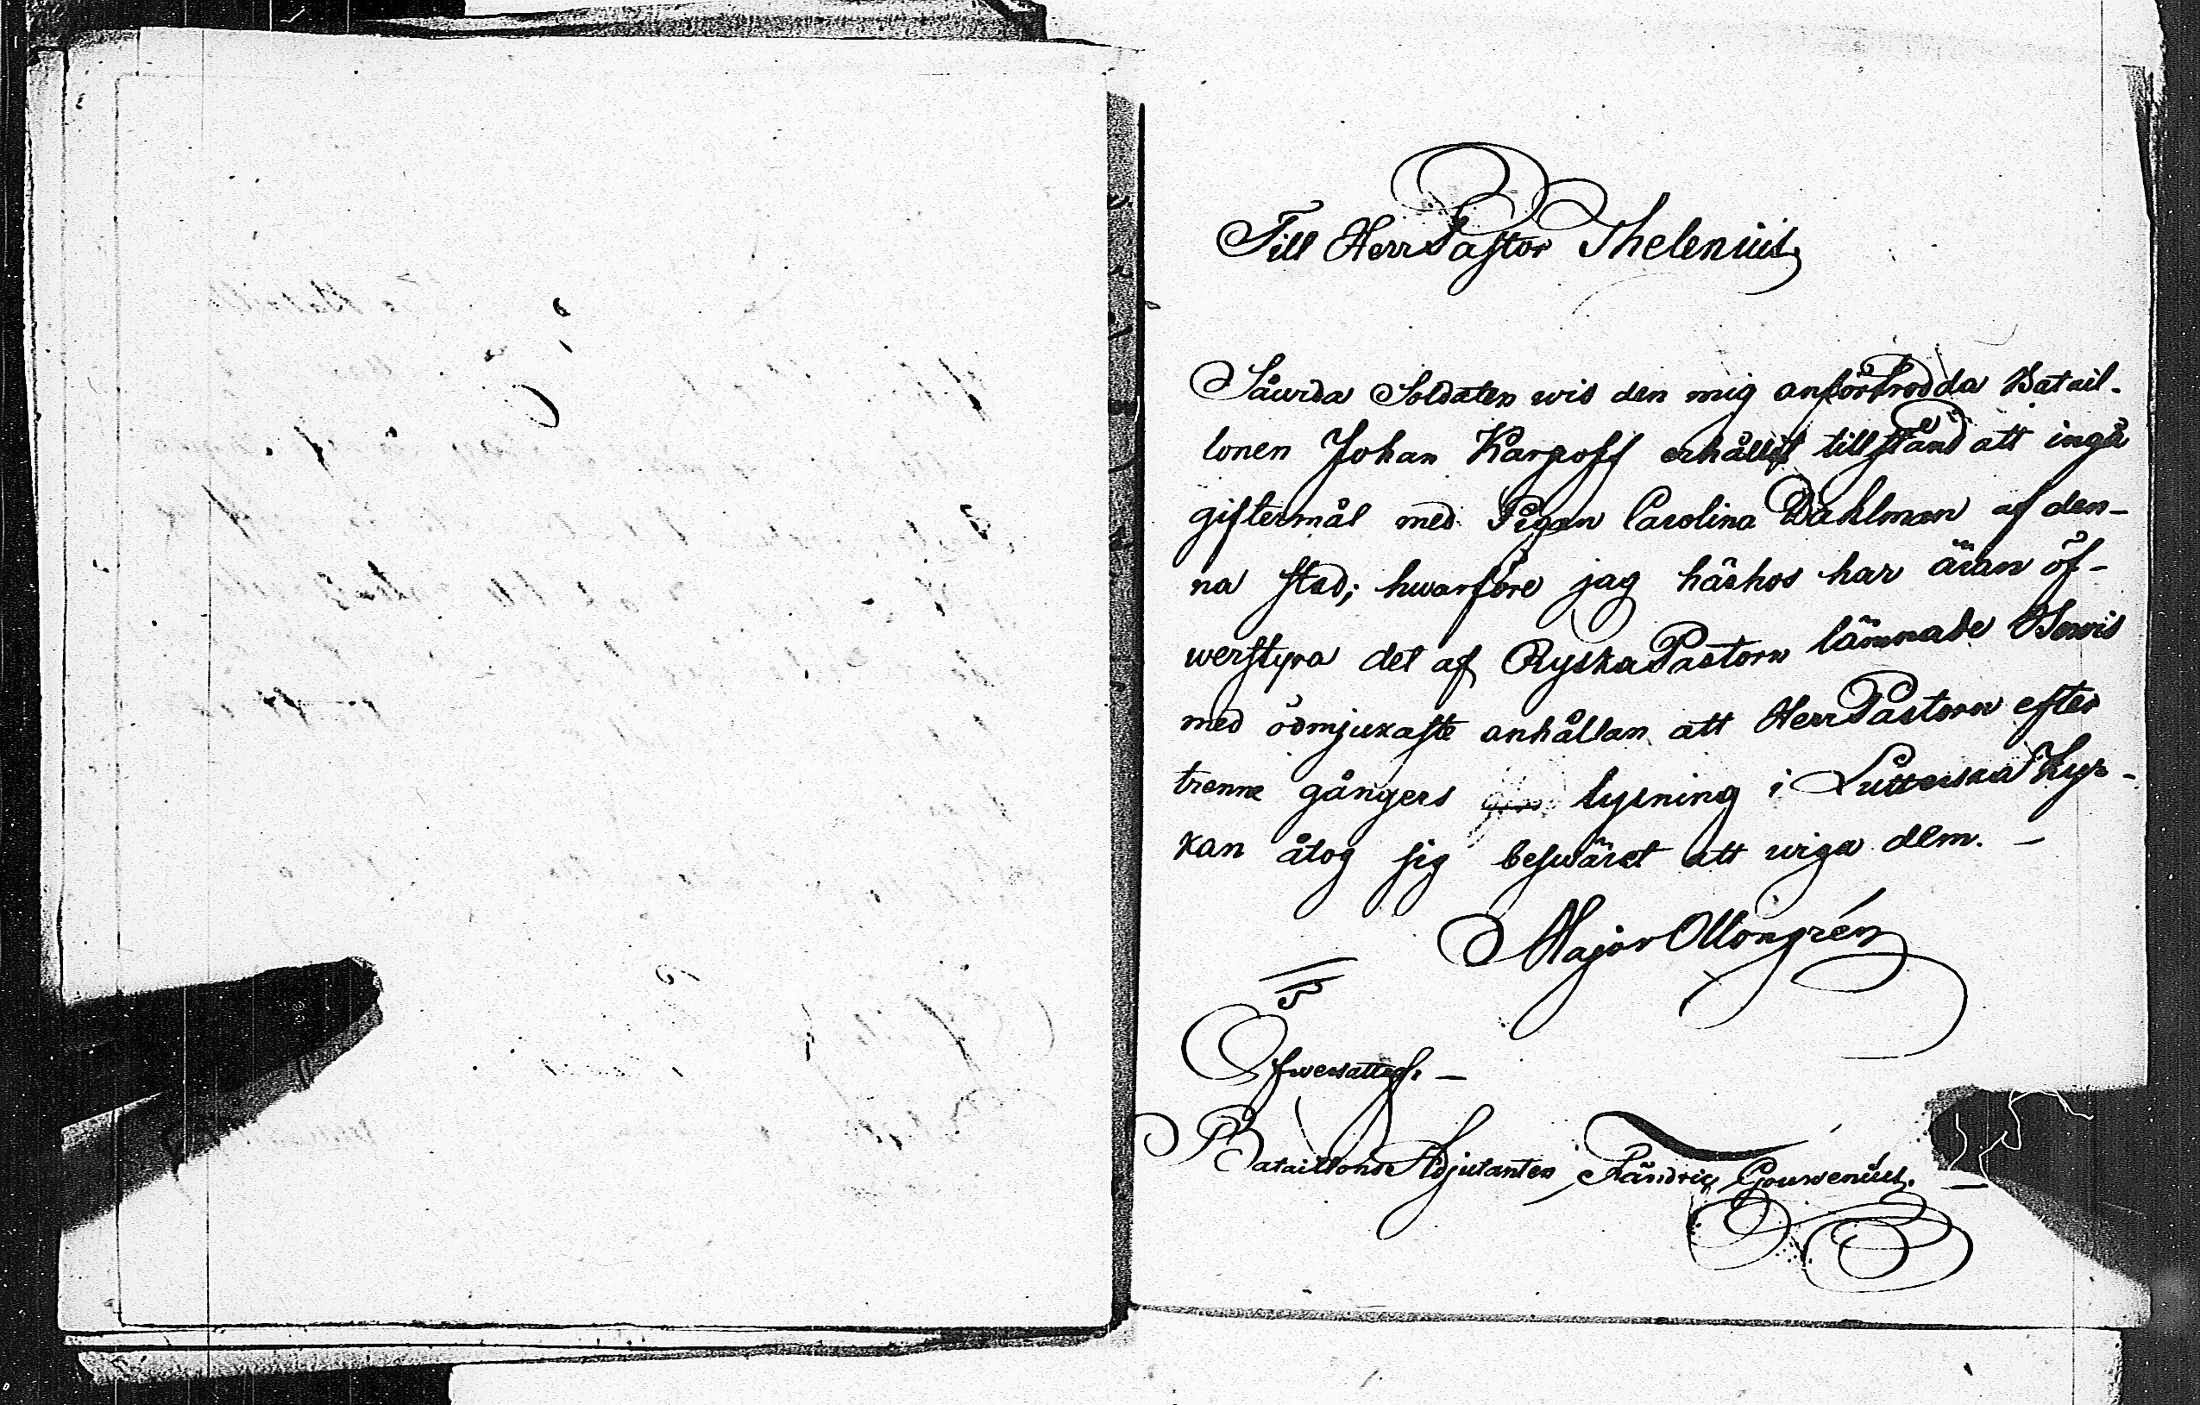 Till Herr Pastor Thelenius
Såwida Soldaten wid den mig anförtrodda Batail-
lonen Johan Karpoff erhållit tillstånd att ingå
giftermål med Pigan Carolina Dahlman af den-
na stad; hwarföre jag härhos har äran öf-
werstyra det af Ryska Pastorn lämnade Bewis
med ödmjukaste anhållan att Herr Pastorn efter
trenne gångers lysning i Lutterska Kyr-
kan åtog sig beswäret att wiga dem. —
Major Ottongrén
Öfwersattes. —
Bataillons Adjutanten Fändric